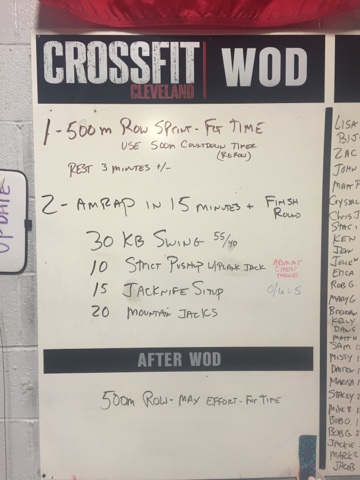 CROSSFIT
CLEVELAND
WOD
1-500m Row Sprint - For Time
USE 500m Countdown Timer
(Rerow)
Rest 3 minutes +/-
2- AMRAP in 15 minutes + Finish
Round
30 KB Swing 55/40
10 Strict Pushup w/Plank Jack
15 Jacknife Situp
20 Mountain Jacks
AFTER WOD
500m Row - Max Effort - For Time
UPDATE
Lisa
Zac
John
Matt
Chris J
Ken
Jody
Julie
Erica
Rob G.
Mary G
Kelly
Dave
Matt
Sam
Missy
Stacey
Mike B
Bob O.
Bob G.
Jackie
Mark
Jacob